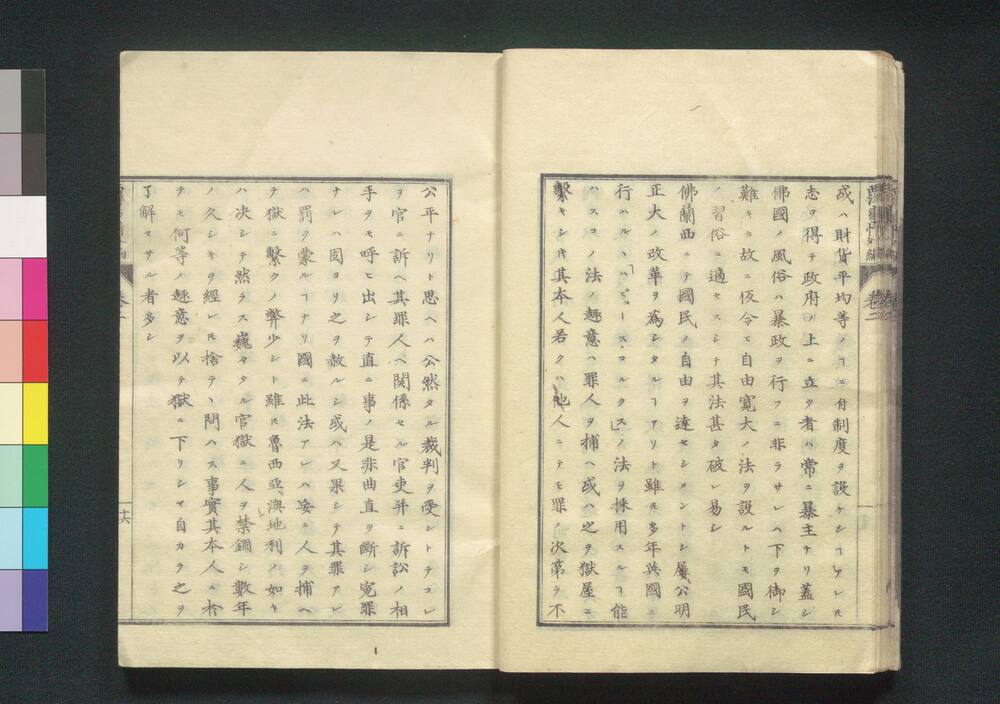 或ハ財貨平均等ノヿニ付制度ヲ設ケシヿアレ𪜈
志ヲ得テ政府ノ上ニ立ツ者ハ常ニ暴主ナリ蓋シ
佛國ノ風俗ハ暴政ヲ行フニ非ラサレハ下ヲ御シ
難キカ故ニ仮令ヒ自由寛大ノ法ヲ設ルトモ國民
ノ習俗ニ適セスシテ其法甚タ破レ易シ
佛蘭西ニテ國民ノ自由ヲ達セシメントシ屢公明
正大ノ改革ヲ為シタルヿアリト雖𪜈多年英國ニ
行ハル「ハビースコルクス」ノ法ヲ採用スルヿ能
ハスコノ法ノ趣意ハ罪人ヲ捕ヘ或ハ之ヲ獄屋ニ
繋キシ𪜈其本人若クハ他人ニテモ罪ノ次第ヲ不
公平ナリト思ヘハ公然タル裁判ヲ受ントテコレ
ヲ官ニ訴ヘ其罪人ヘ関係セル官吏并ニ訴訟ノ相
手ヲモ呼ヒ出シテ直ニ事ノ是非曲直ヲ断シ寃罪
ナレハ固ヨリ之ヲ赦ルシ或ハ又果シテ其罪アレ
ハ罰ヲ蒙ルヿナリ國ニ此法アレハ妄ニ人ヲ捕ヘ
テ獄ニ繋クノ弊少シト雖𪜈魯西亞澳地利ノ如キ
ハ決シテ然ラス巍々タル官獄ニ人ヲ禁錮シ數年
ノ久シキヲ經レ𪜈捨テヽ問ハス事實其本人ニ於
テモ何等ノ趣意ヲ以テ獄ニ下リシヤ自カラ之ヲ
了解セサル者多シ
卷二
十六